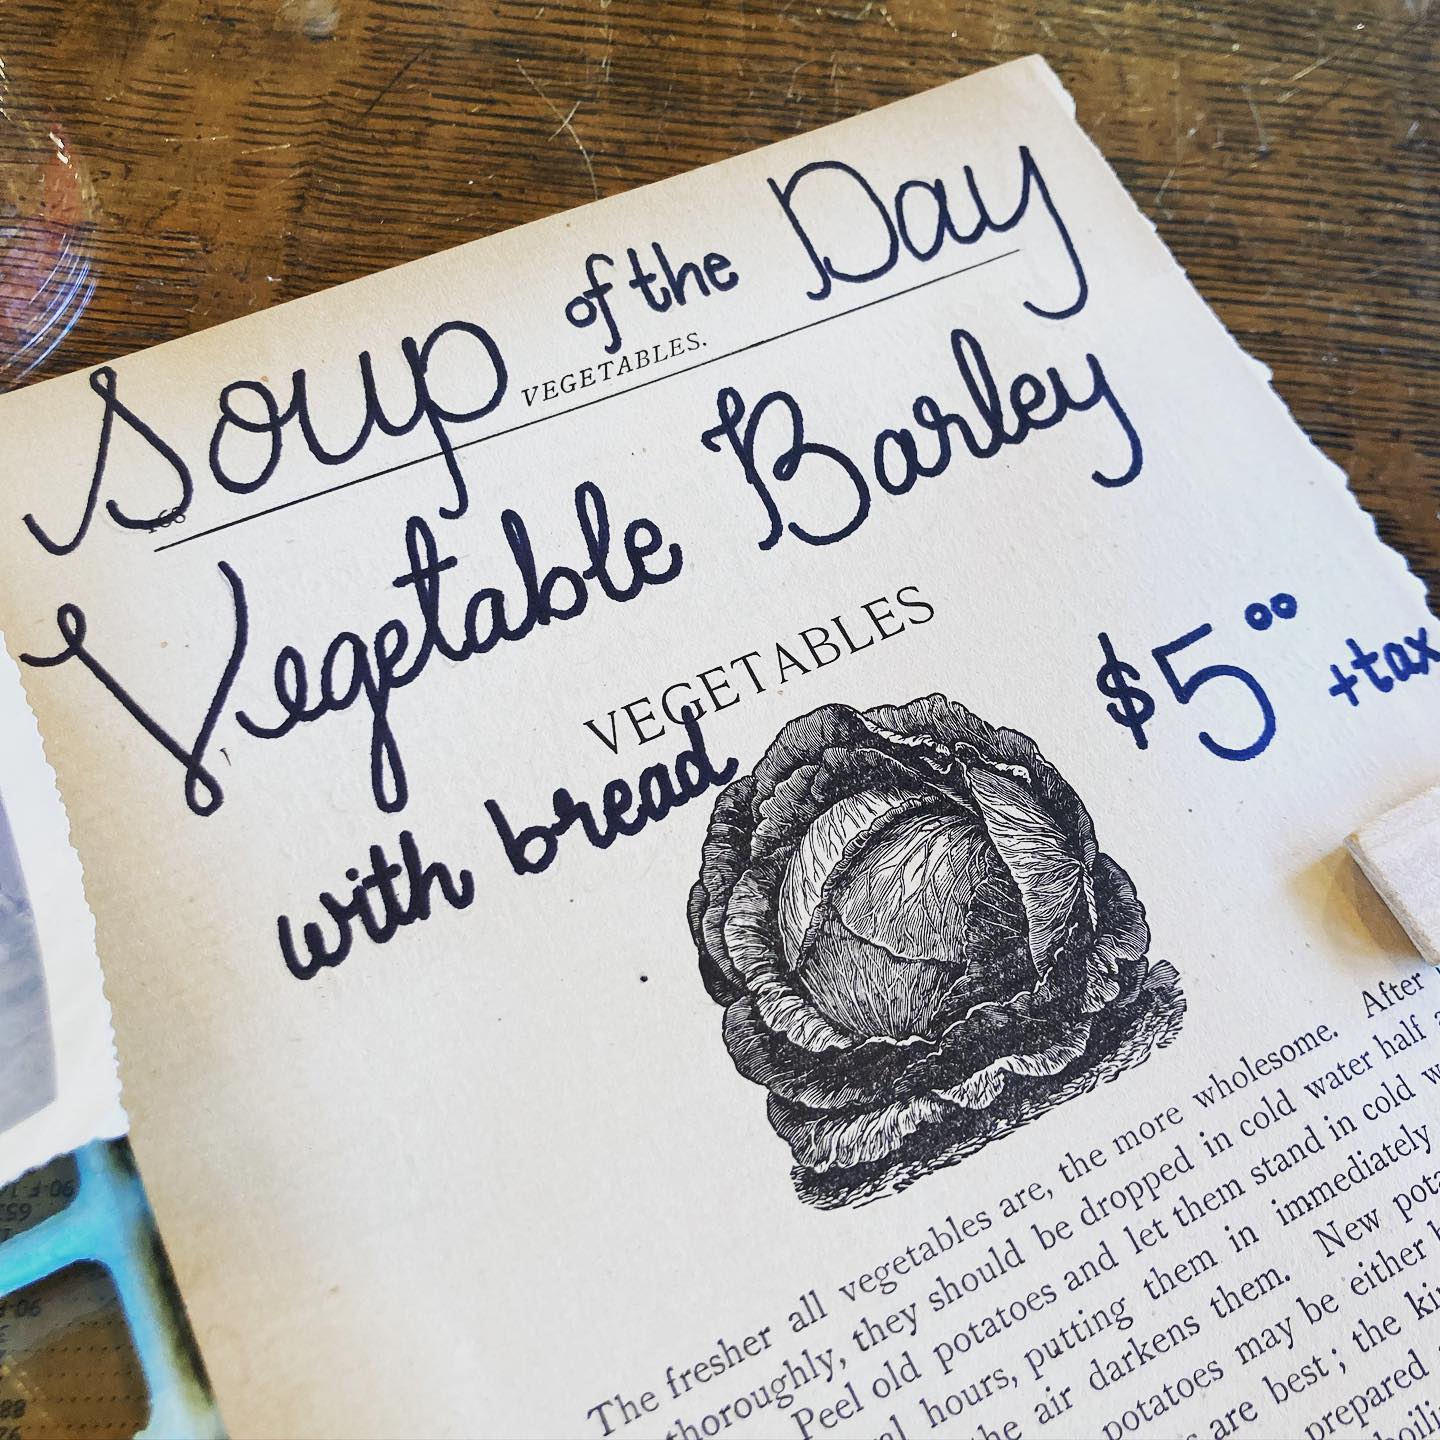 Soup of the Day
VEGETABLES.
168
Vegetable Barley
VEGETABLES
$5.00 +tax
with bread
The fresher all vegetables are, the more wholesome. After
thoroughly, they should be dropped in cold water half
Peel old potatoes and let them stand in cold
hours, putting them in immediately
the air darkens them. New
potatoes may be either
are best; the
prepared